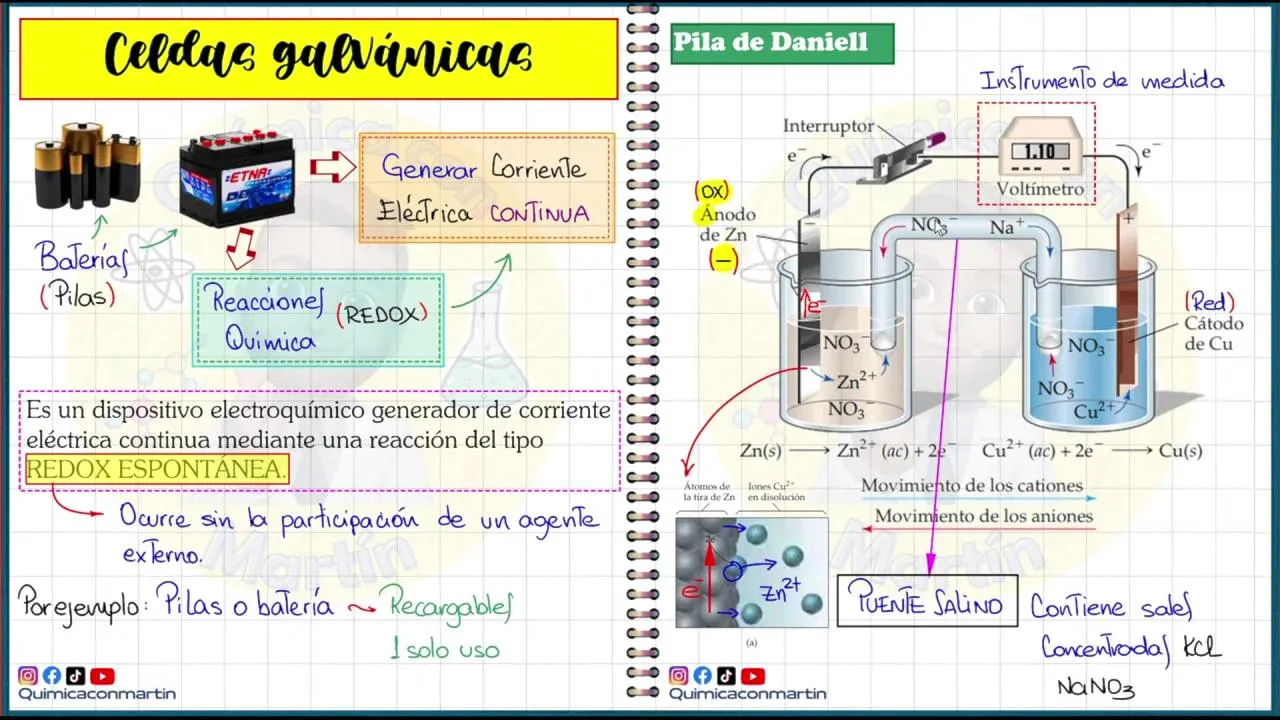 Celdas galvánicas
ETNA
Generar Corriente
Eléctrica CONTINUA
Baterías
(Pilas)
Reacciones
Química
(REDOX)
Es un dispositivo electroquímico generador de corriente
eléctrica continua mediante una reacción del tipo
REDOX ESPONTÁNEA.
Ocurre sin la participación de un agente
externo.
Por ejemplo: Pilas o batería
Recargables
1 solo uso
Quimicaconmartin
Pila de Daniell
Instrumento de medida
Interruptor
1.10
Voltímetro
e⁻
e⁻
(OX)
Ánodo
de Zn
(−)
−
+
NO₃⁻
Na⁺
e⁻
(Red)
Cátodo
de Cu
NO₃⁻
Zn²⁺
NO₃⁻
NO₃⁻
NO₃⁻
Cu²⁺
Zn(s) ⟶ Zn²⁺ (ac) + 2e⁻
Cu²⁺ (ac) + 2e⁻ ⟶ Cu(s)
Movimiento de los cationes
Movimiento de los aniones
Átomos de
la tira de Zn
Iones Cu²⁺
en disolución
2e⁻
e⁻
Zn²⁺
(a)
PUENTE SALINO
Contiene sales
Concentradas KCl
NaNO₃
Quimicaconmartin